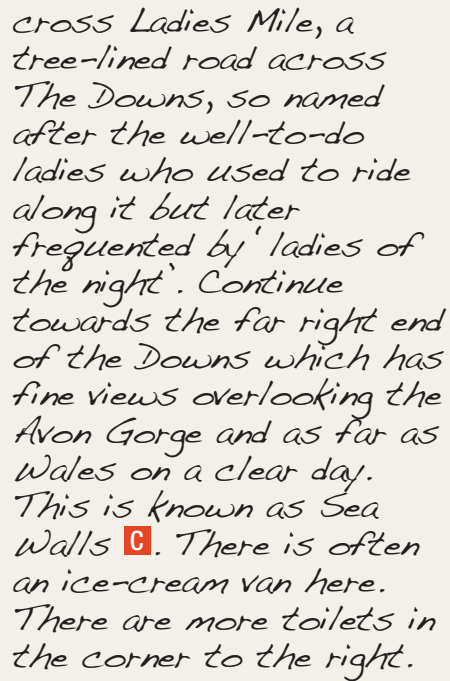 cross Ladies Mile, a
tree-lined road across
The Downs, so named
after the well-to-do
ladies who used to ride
along it but later
frequented by ‘ ladies of
the night’. Continue
towards the far right end
of the Downs which has
fine views overlooking the
Avon Gorge and as far as
Wales on a clear day.
This is known as Sea
Walls C. There is often
an ice-cream van here.
There are more toilets in
the corner to the right.